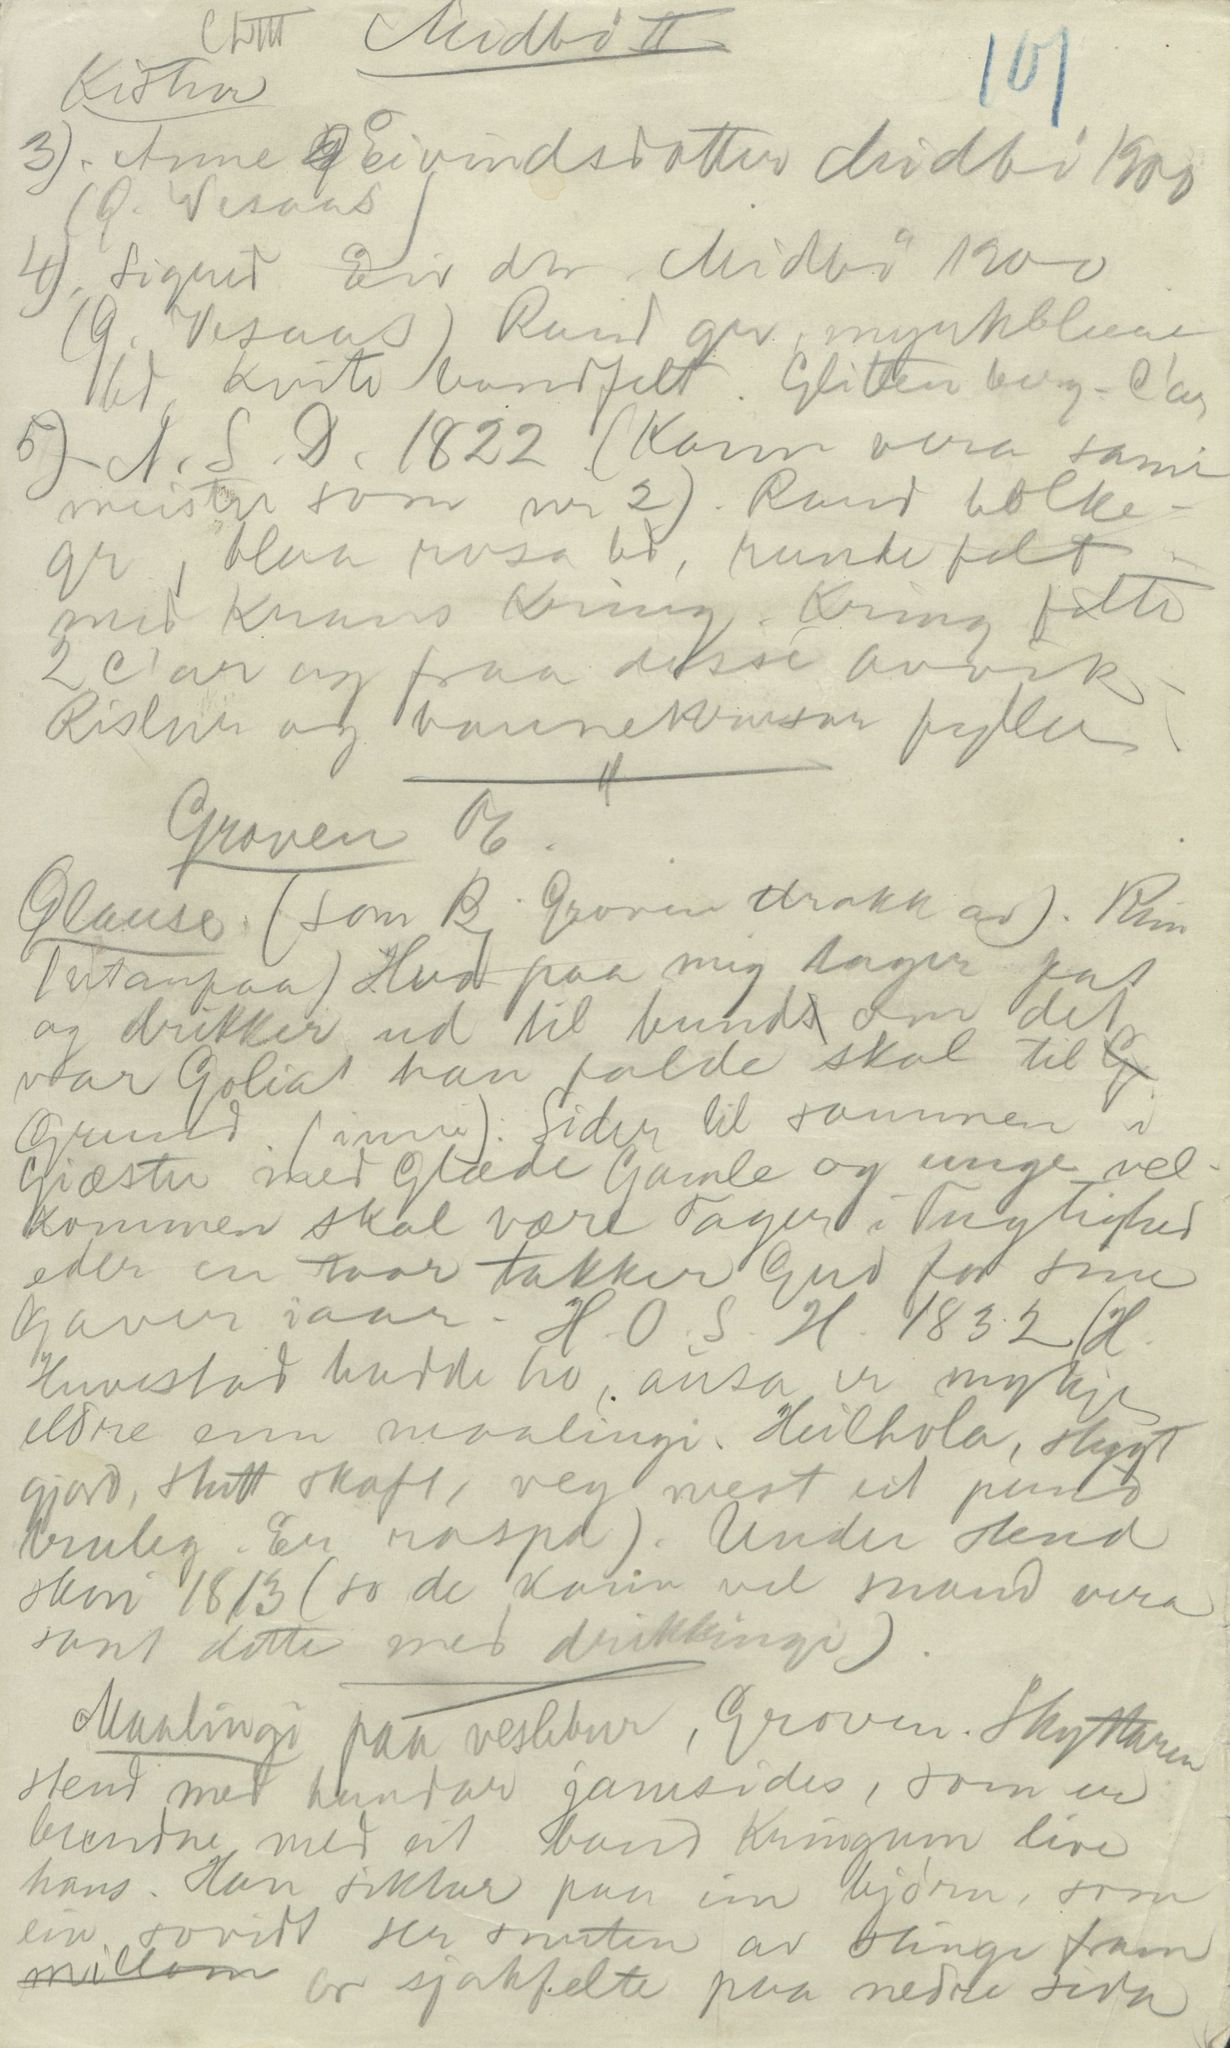 Midbö II
107
Kistur
3). Anne Eivindsdotter Midbö 1900
(Q. Vesaas)
4), Sigrid Eiv dtr Midbö 1900
(Q. Vesaas) Raud gr, myrkblaae
bd, kvite bandfelt. Glitten burg - C'ar
5) - A. S. D. 1822 (Kann vera same
meister som nr 2). Raud bolke-
gr, blaa rosa bd, runde felt
med Krans Kring. Kring felte
2 C'ar og fraa desse avvik
Rislur og vannekransar fyller.
Groven
Glause. (som Bj. Groven drakk av). Rim
(utanpaa) Hvo paa mig tager fat
og drikker ud til bund om det
var Goliat han falde skal til
Grund. (inni). Sider til sammen i
Giæster med Glæde Gamle og unge vel-
kommen skal være Tager i Tugtighed
eder en taar takker Gud for sine
Gaver i aar - H. O. S. H. 1832 (H.
Huvestad hadde ho, ausa er mykje
eldre enn maalingi. Heilhola, stygt
gjord, stutt skaft, veg mest eit pund
truleg. Er raspa). Under stend
skori 1813 (so de kann vel snaud vera
sant dette med drikkingi).
Maalingi paa veslebur, Groven. Skyttaren
stend med hundar jamsides, som er
bundne med eit band Kringum live
hans. Han siktar paa ein björn, som
ein sovidt ser snuten av stinge fram
millom or sjakfelte paa nedre sida